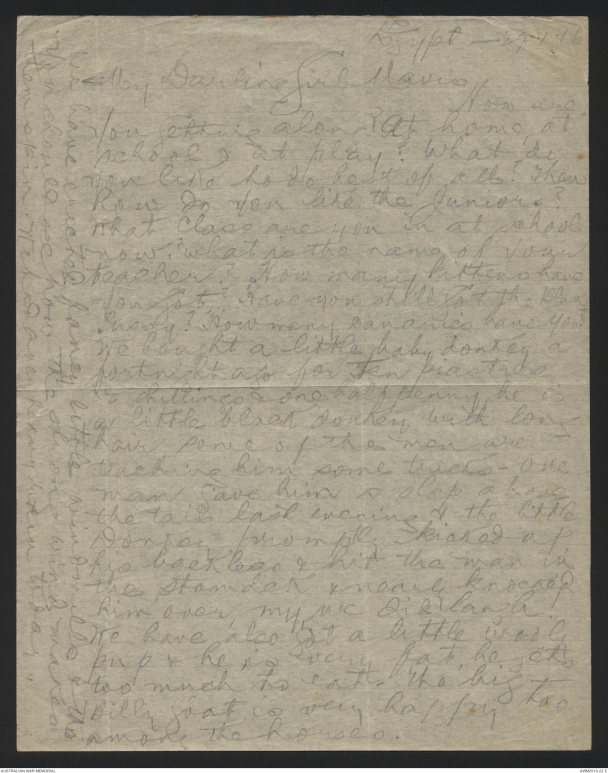 Egypt - 27.1.16
My Darling Girl Mavis
How are
You getting along? At home, at
school & at play? What do
you like to do best of all? Then
how do you like the Juniors?
What Class are you in at school
now? What is the name of your
teacher? How many kittens have
you got? Have you still got the
Pussy? How many canaries have you?
We bought a little baby donkey a
fortnight ago for ten piastres
2 shillings & one half penny, he is
a little black donkey with long
hair, some of the men are
teaching him some tricks - one
man gave him a slap above
the tail last evening & the little
Donkey promptly kicked up
his back legs & hit the man in
the stomach & nearly knocked
him over, my we did laugh.
We have also got a little wooly
pup & he is very fat, he gets
too much to eat. The big
Billy goat is very happy too
among the horses.
We have erected fancy little windmills & the
You should see how the strong wind makes
them spin. We had any rain today
AUSTRALIAN WAR MEMORIAL